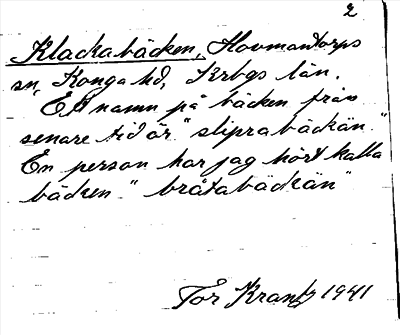 2
Klackabäcken, Hovmantorps
sn, Konga hd, Krbgs län.
Ett namn på bäcken från
senare tid är "slipra bäckän."
En person har jag hört kalla
bäcken "bråtabäckän"
Tor Krantz 1941